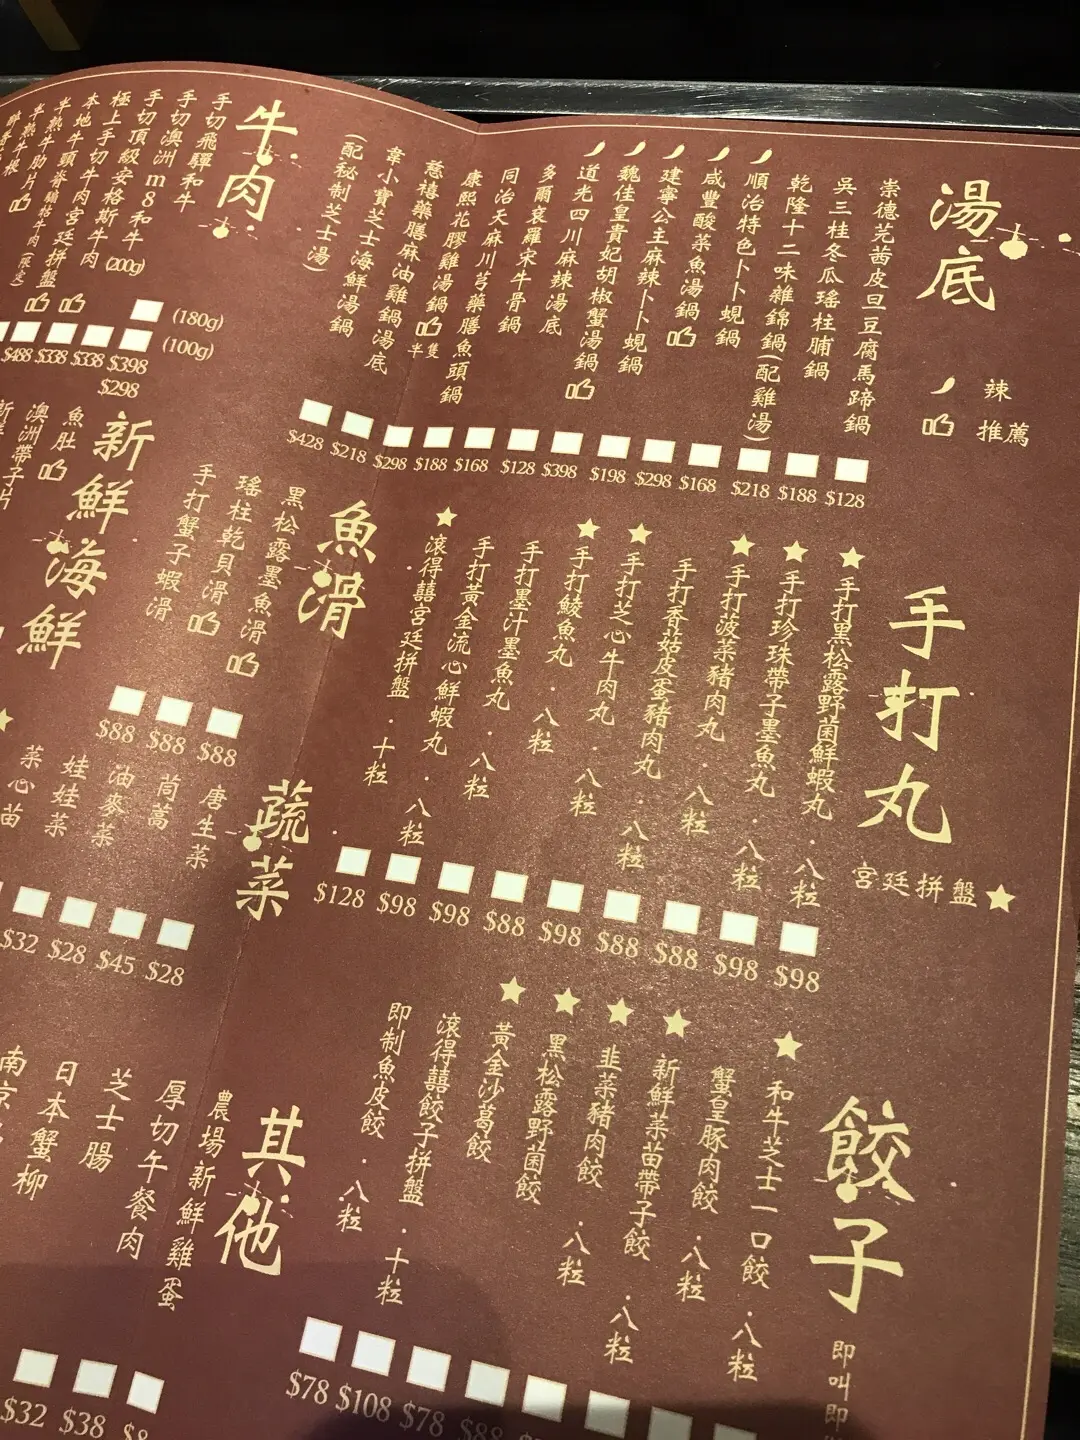 湯底
辣
推薦
崇德芫茜皮旦豆腐馬蹄鍋
$128
吳三桂冬瓜瑤柱脯鍋
$188
乾隆十二味雜錦鍋(配雞湯)
$218
順治特色卜卜蜆鍋
$168
咸豐酸菜魚湯鍋
$298
建寧公主麻辣卜卜蜆鍋
$198
魏佳皇貴妃胡椒蟹湯鍋
$398
道光四川麻辣湯底
$128
多爾袞羅宋牛骨鍋
$168
同治天麻川芎藥膳魚頭鍋
$188
康熙花膠雞湯鍋
半隻
$298
慈禧藥膳麻油雞鍋湯底
$218
韋小寶芝士海鮮湯鍋
(配秘制芝士湯)
$428
手打丸
宮廷拼盤
手打黑松露野菌鮮蝦丸.八粒
$98
手打珍珠帶子墨魚丸.八粒
$98
手打菠菜豬肉丸.八粒
$88
手打香菇皮蛋豬肉丸.八粒
$88
手打芝心牛肉丸.八粒
$98
手打鯪魚丸.八粒
$88
手打墨汁墨魚丸.八粒
$98
手打黃金流心鮮蝦丸.八粒
$98
滾得囍宮廷拼盤.十粒
$128
餃子
即叫即
和牛芝士一口餃.八粒
蟹皇豚肉餃.八粒
新鮮菜苗帶子餃.八粒
韭菜豬肉餃.八粒
黑松露野菌餃
黃金沙葛餃
$78
滾得囍餃子拼盤.十粒
$108
即制魚皮餃.八粒
$78
牛肉
手切飛驒和牛
(180g)
(100g)
手切澳洲m8和牛
手切頂級安格斯牛肉
(200g)
極上手切牛肉宮廷拼盤
$488 $338 $338 $398
$298
魚滑
黑松露墨魚滑
$88
瑤柱乾貝滑
$88
手打蟹子蝦滑
$88
新鮮海鮮
魚肚
澳洲帶子片
蔬菜
唐生菜
$28
茼蒿
$45
油麥菜
$28
娃娃菜
$32
菜心苗
其他
農場新鮮雞蛋
厚切午餐肉
$38
芝士腸
$32
日本蟹柳